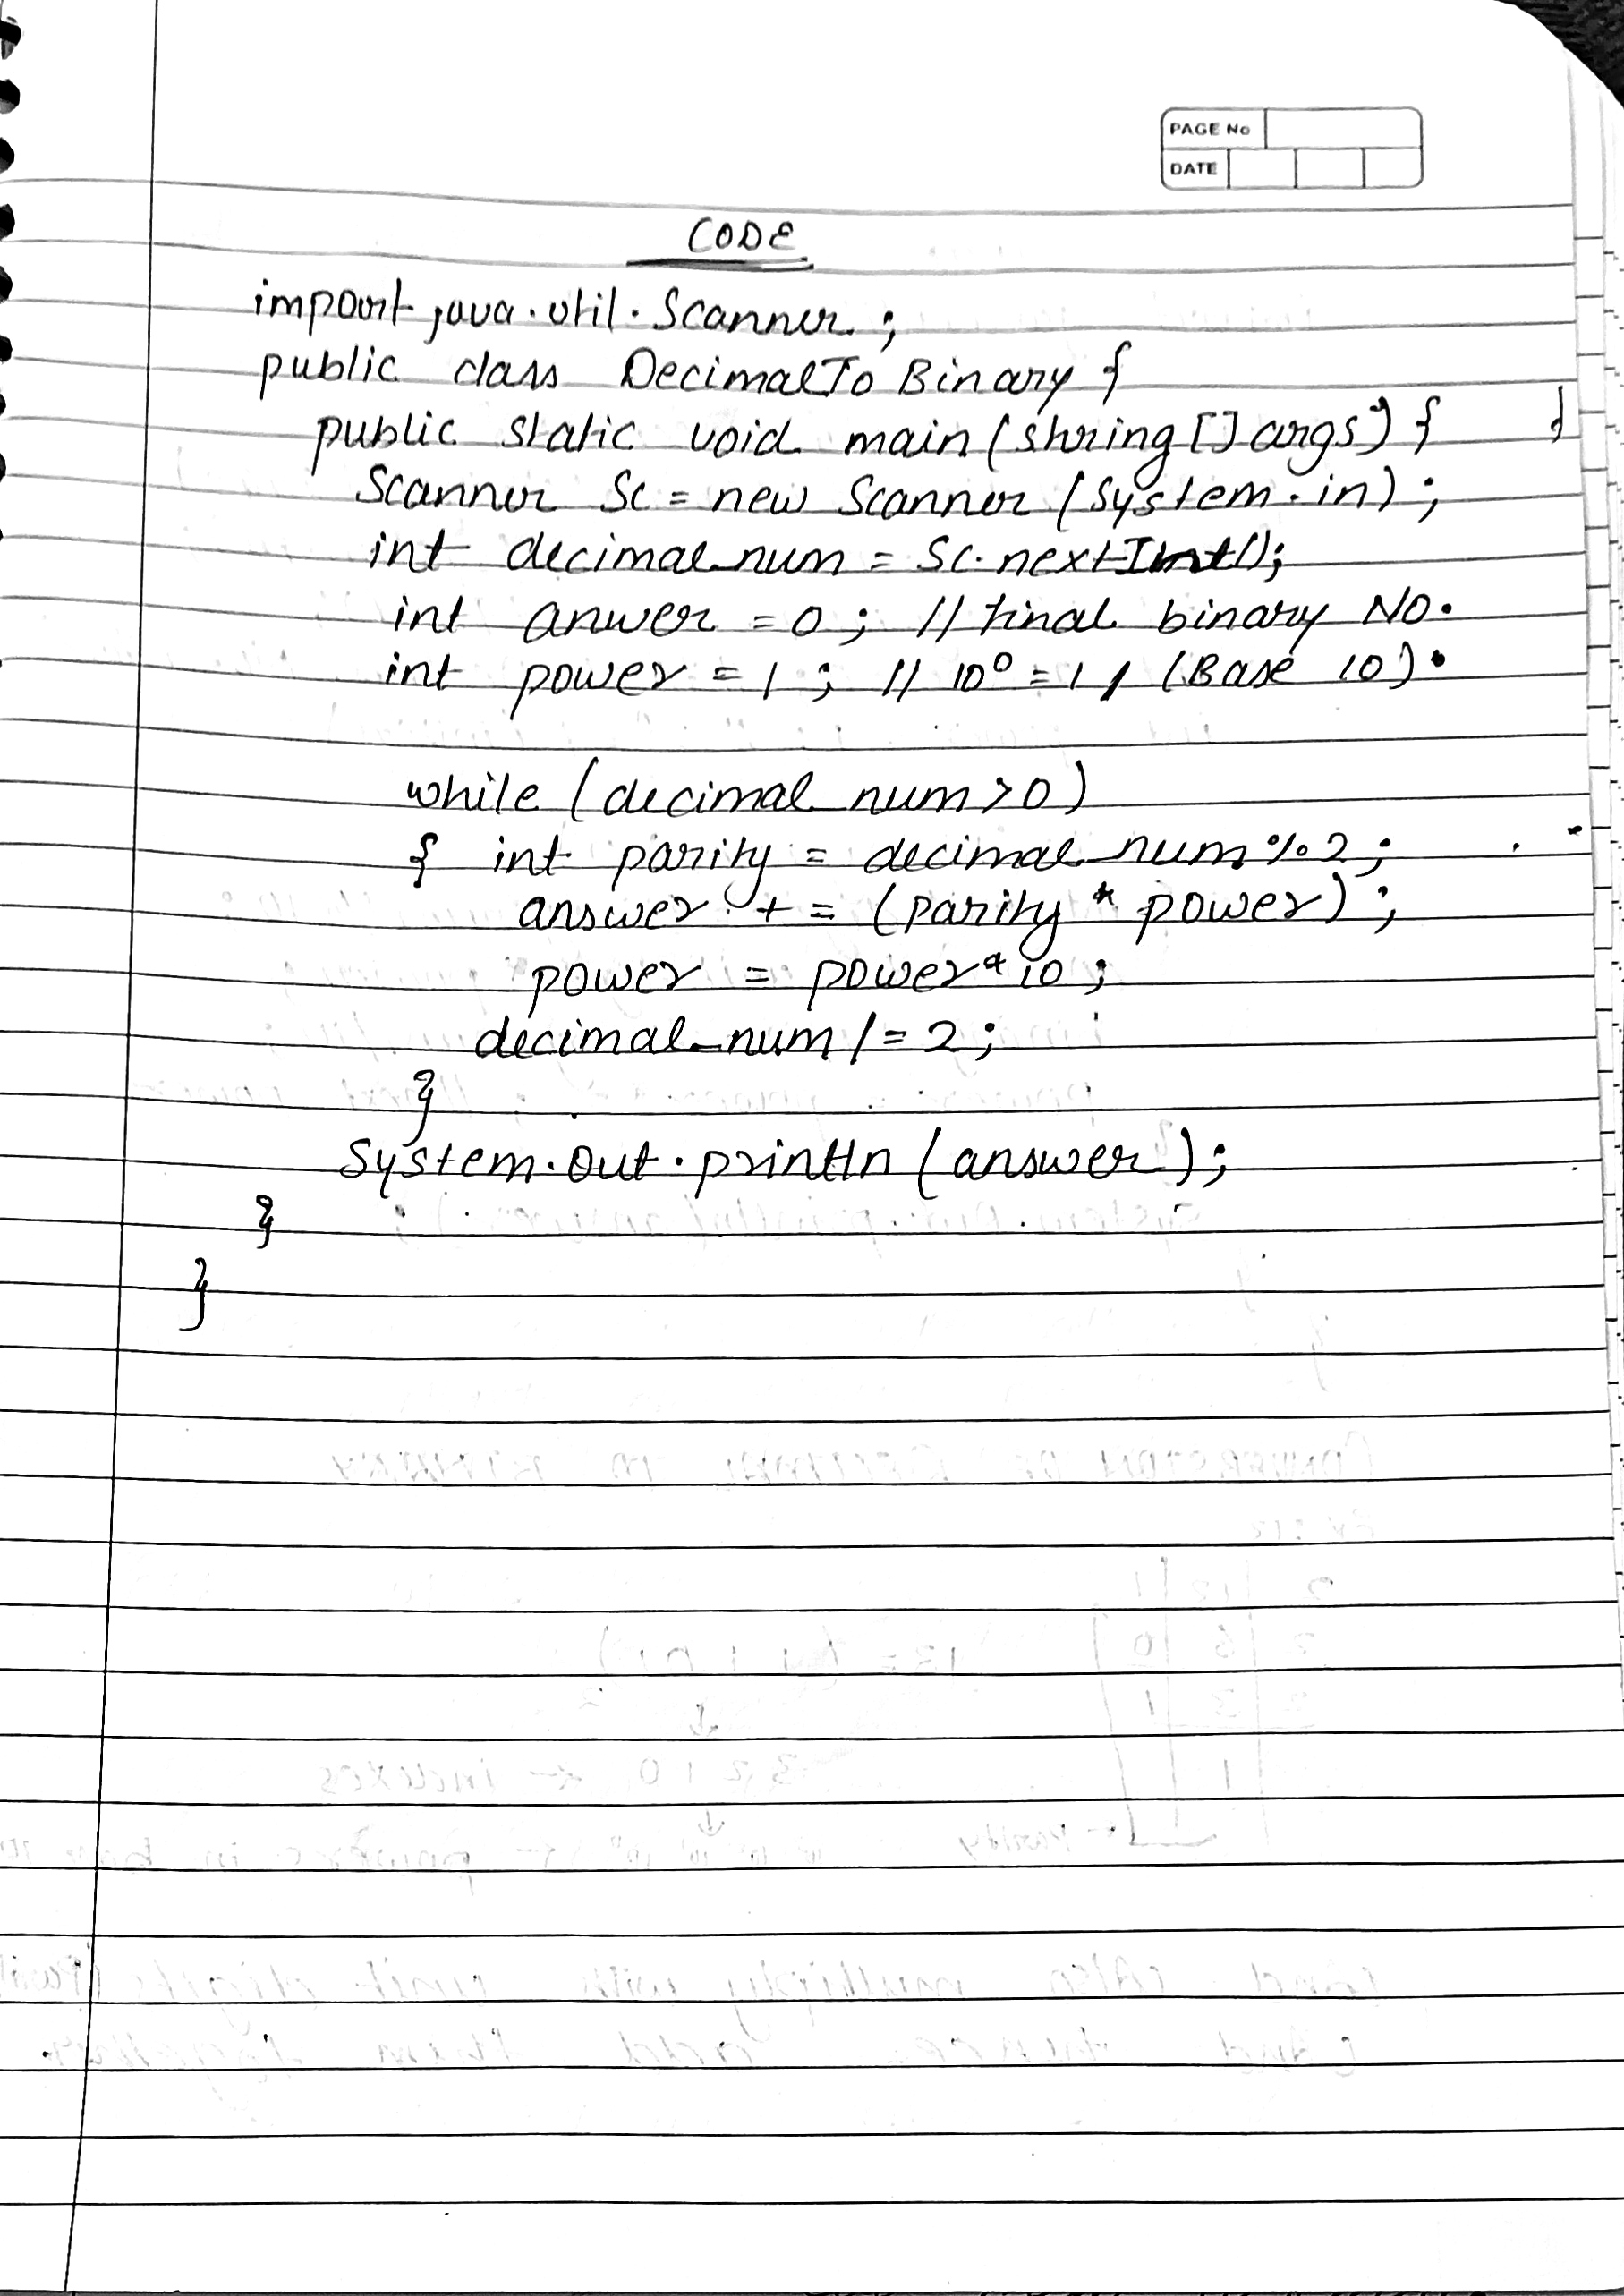 PAGE No
DATE
CODE
import java.util.Scanner;
public class DecimalTo Binary {
public static void main(string [] args) { }
Scanner Sc = new Scanner (System.in);
int decimal_num = Sc.nextInt();
int anwer = 0; // final binary NO.
int power = 1; // 10⁰ = 1, (Base 10).
while (decimal_num > 0)
{ int parity = decimal_num % 2;
answer += (parity * power);
power = power * 10;
decimal_num /= 2;
}
System.out.println (answer);
}
}